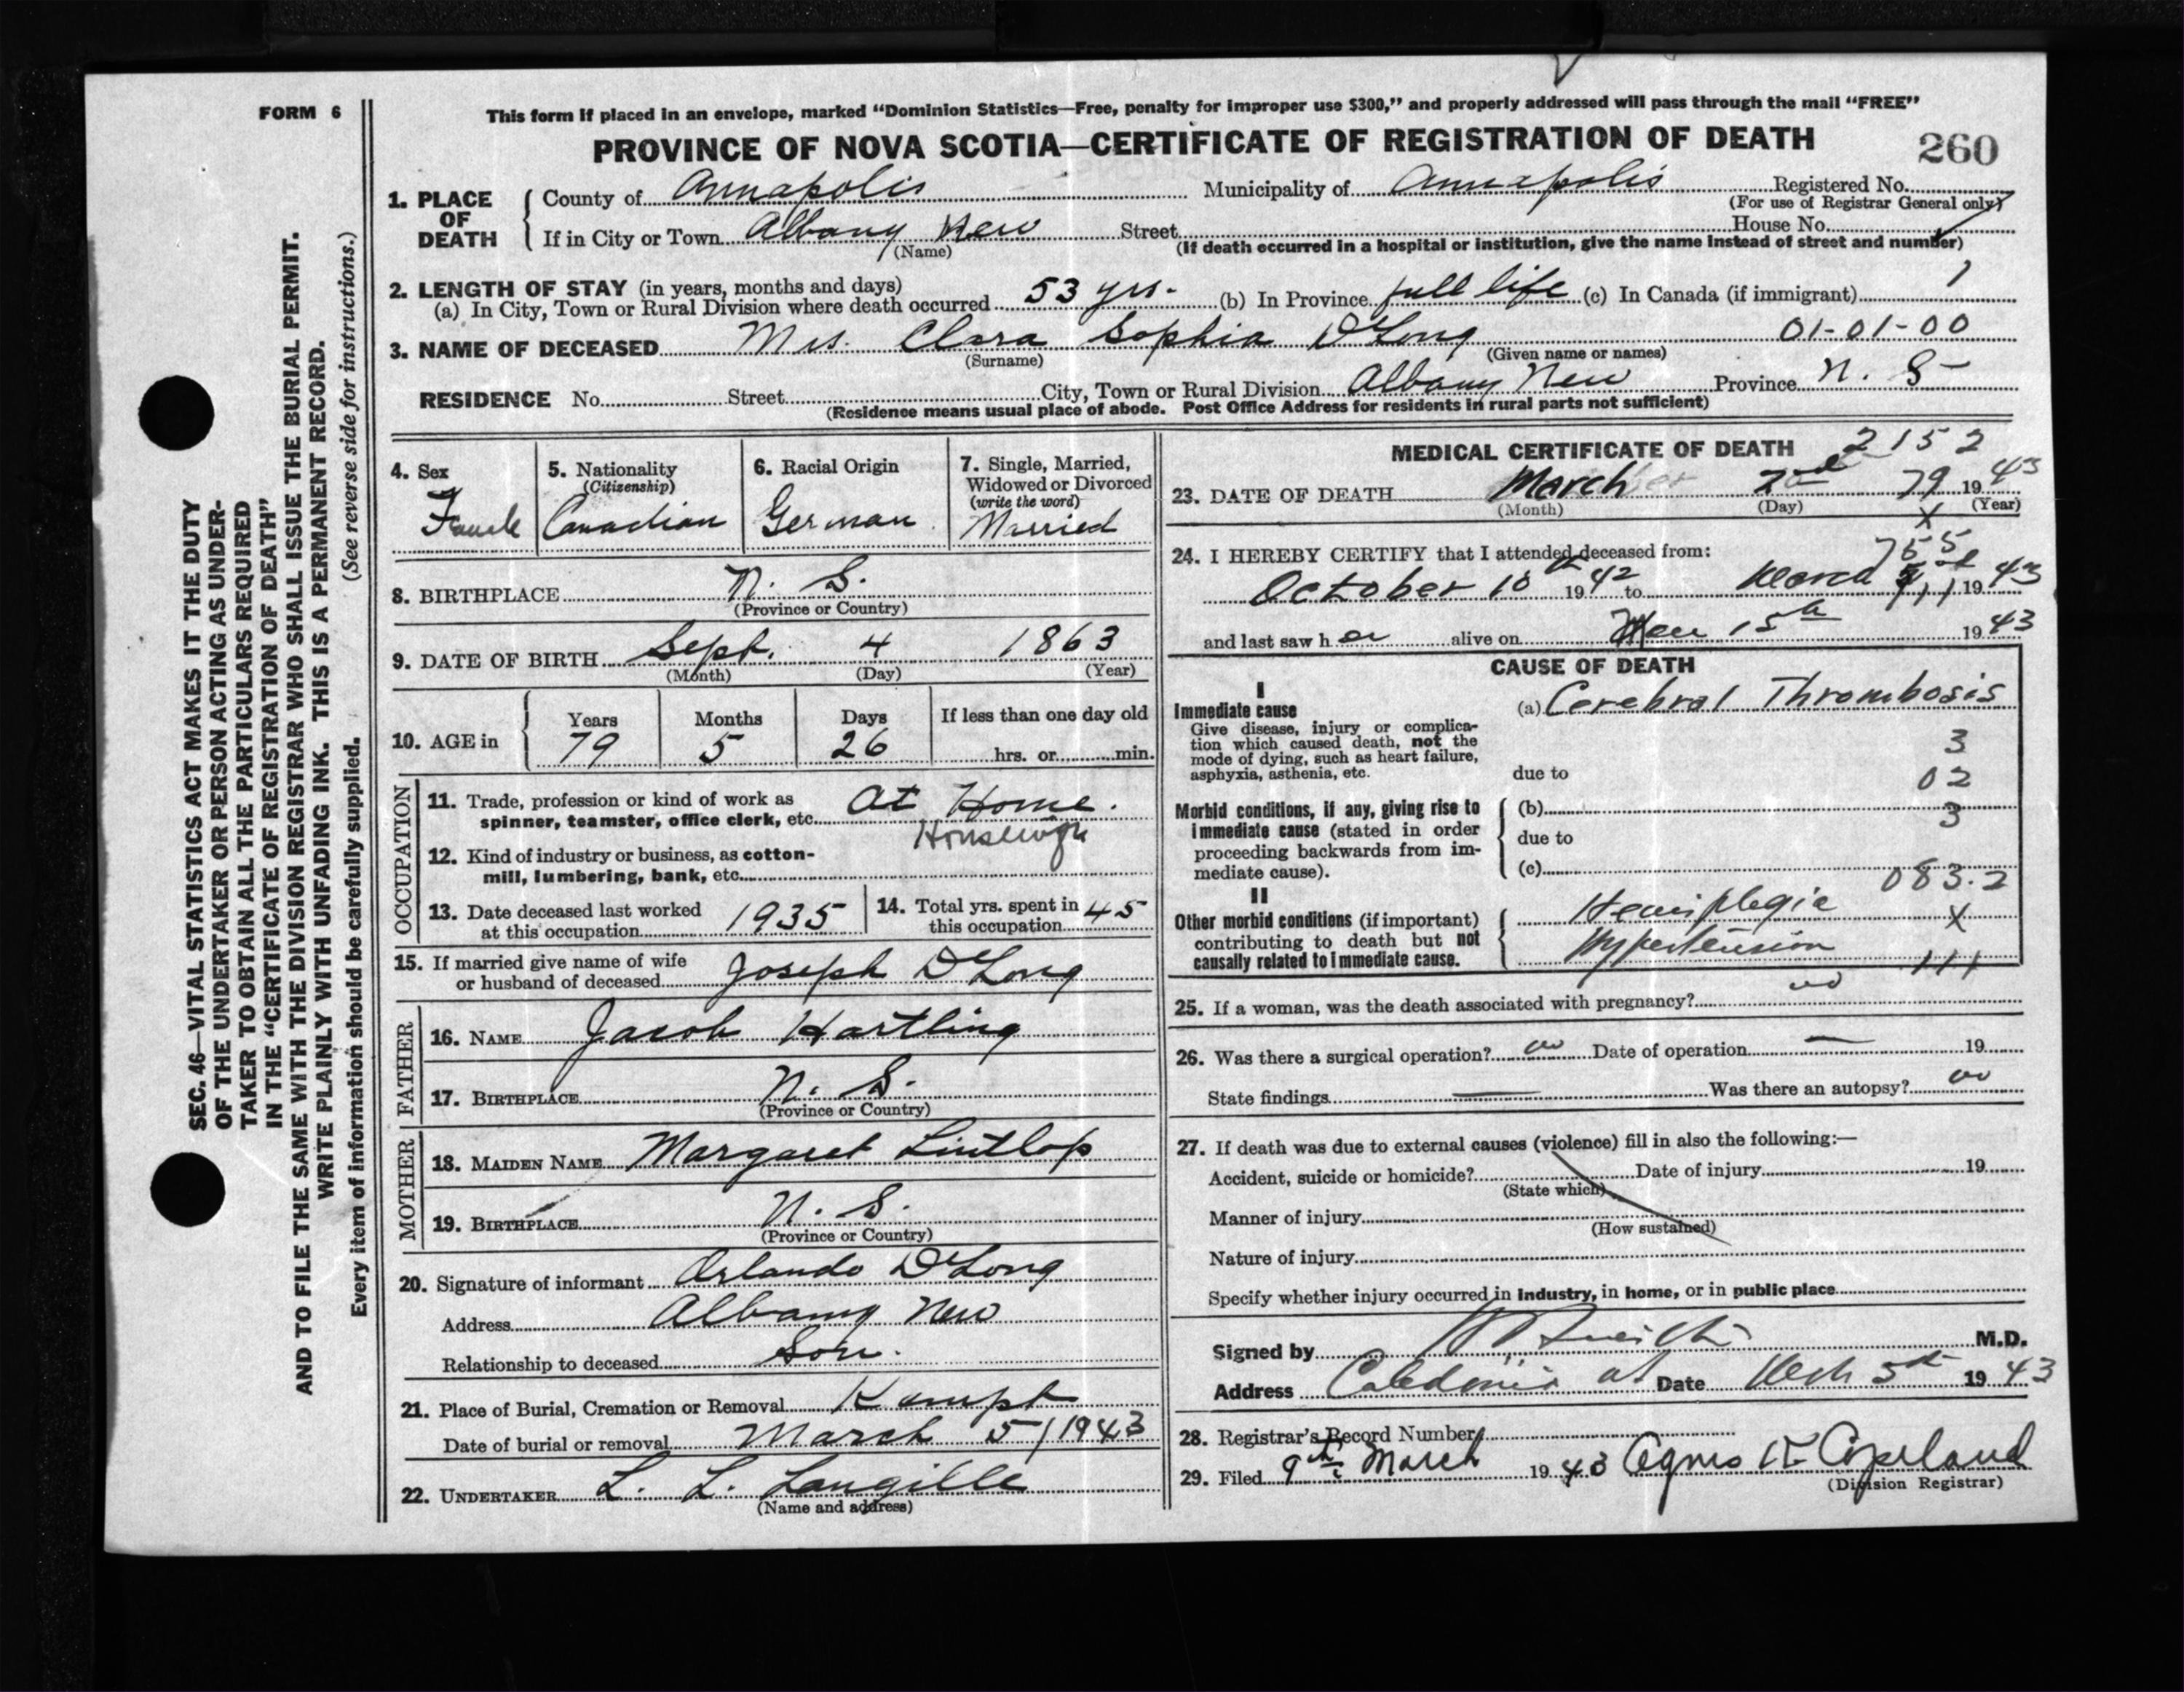 FORM 6
This form if placed in an envelope, marked "Dominion Statistics—Free, penalty for improper use $300," and properly addressed will pass through the mail "FREE"
PROVINCE OF NOVA SCOTIA—CERTIFICATE OF REGISTRATION OF DEATH
260
1. PLACE OF DEATH
County of Annapolis Municipality of Annapolis Registered No.
(For use of Registrar General only)
If in City or Town Albany New Street House No.
(Name) (If death occurred in a hospital or institution, give the name instead of street and number)
2. LENGTH OF STAY (in years, months and days)
(a) In City, Town or Rural Division where death occurred 53 yrs. (b) In Province full life (c) In Canada (if immigrant)
3. NAME OF DECEASED Mrs. Clara Sophia DeLong 01-01-00
(Surname) (Given name or names)
RESIDENCE No. Street City, Town or Rural Division Albany New Province N. S
(Residence means usual place of abode. Post Office Address for residents in rural parts not sufficient)
4. Sex
Female
5. Nationality
(Citizenship)
Canadian
6. Racial Origin
German
7. Single, Married, Widowed or Divorced
(write the word)
Married
8. BIRTHPLACE N. S.
(Province or Country)
9. DATE OF BIRTH Sept. 4 1863
(Month) (Day) (Year)
10. AGE in
Years Months Days If less than one day old
79 5 26 hrs. or min.
OCCUPATION
11. Trade, profession or kind of work as
spinner, teamster, office clerk, etc. At Home.
Housewife
12. Kind of industry or business, as cotton-
mill, lumbering, bank, etc.
13. Date deceased last worked
at this occupation 1935
14. Total yrs. spent in
this occupation 45
15. If married give name of wife
or husband of deceased Joseph DeLong
FATHER
16. NAME Jacob Hartling
17. BIRTHPLACE N. S.
(Province or Country)
MOTHER
18. MAIDEN NAME Margaret
19. BIRTHPLACE N. S.
(Province or Country)
20. Signature of informant Orlando DeLong
Address Albany New
Relationship to deceased Son.
21. Place of Burial, Cremation or Removal Kempt
Date of burial or removal March 5/1943
22. UNDERTAKER L. L. Langille
(Name and address)
MEDICAL CERTIFICATE OF DEATH
2152
23. DATE OF DEATH March 2nd 79 1943
(Month) (Day) (Year)
X
24. I HEREBY CERTIFY that I attended deceased from:
755
October 18th 1942 to March 1943
and last saw her alive on 15th 1943
CAUSE OF DEATH
I
Immediate cause
Give disease, injury or complica-
tion which caused death, not the
mode of dying, such as heart failure,
asphyxia, asthenia, etc.
(a) Cerebral Thrombosis
3
due to 02
Morbid conditions, if any, giving rise to
immediate cause (stated in order
proceeding backwards from im-
mediate cause).
(b) 3
due to
(c)
083.2
II
Other morbid conditions (if important)
contributing to death but not
causally related to immediate cause.
Hemiplegia X
Hypertension 111
25. If a woman, was the death associated with pregnancy? no
26. Was there a surgical operation? no Date of operation — 19
State findings — Was there an autopsy? no
27. If death was due to external causes (violence) fill in also the following:—
Accident, suicide or homicide? Date of injury 19
(State which)
Manner of injury
(How sustained)
Nature of injury
Specify whether injury occurred in industry, in home, or in public place
Signed by M.D.
Address Caledonia Date 5th 1943
28. Registrar's Record Number
29. Filed 9th March 1943 Agnes Copeland
(Division Registrar)
SEC. 46—VITAL STATISTICS ACT MAKES IT THE DUTY
OF THE UNDERTAKER OR PERSON ACTING AS UNDER-
TAKER TO OBTAIN ALL THE PARTICULARS REQUIRED
IN THE "CERTIFICATE OF REGISTRATION OF DEATH"
AND TO FILE THE SAME WITH THE DIVISION REGISTRAR WHO SHALL ISSUE THE BURIAL PERMIT.
WRITE PLAINLY WITH UNFADING INK. THIS IS A PERMANENT RECORD.
(See reverse side for instructions.)
Every item of information should be carefully supplied.